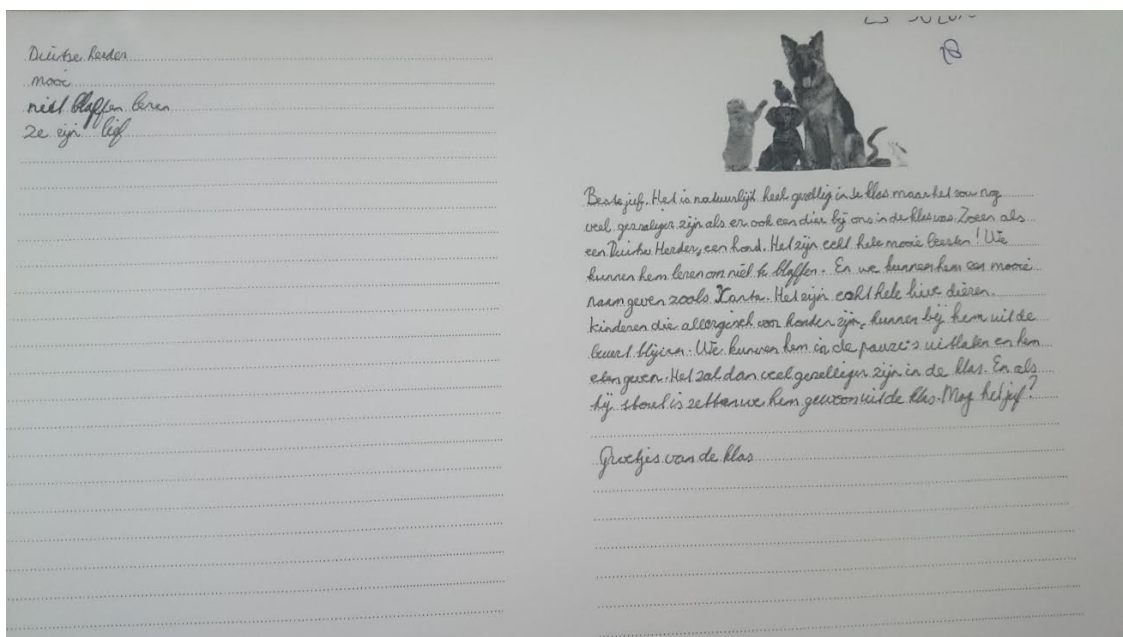 Duitse herder
mooi
niet blaffen leren
ze zijn lief
Beste juf. Het is natuurlijk heel gezellig in de klas maar het zou nog
veel gezelliger zijn als er ook een dier bij ons in de klas was. Zoeen als
een Duitse Herder, een hond. Het zijn echt hele mooie beesten! We
kunnen hem leren om niet te blaffen. En we kunnen hem een mooie
naam geven zoals Xanta. Het zijn echt hele lieve dieren.
kinderen die allergisch voor honden zijn, kunnen bij hem uit de
buurt blijven. We kunnen hem in de pauze's uitlaten en hem
eten geven. Het zal dan veel gezelliger zijn in de klas. En als
hij stout is zetten we hem gewoon uit de klas. Mag het juf?
Groetjes van de klas